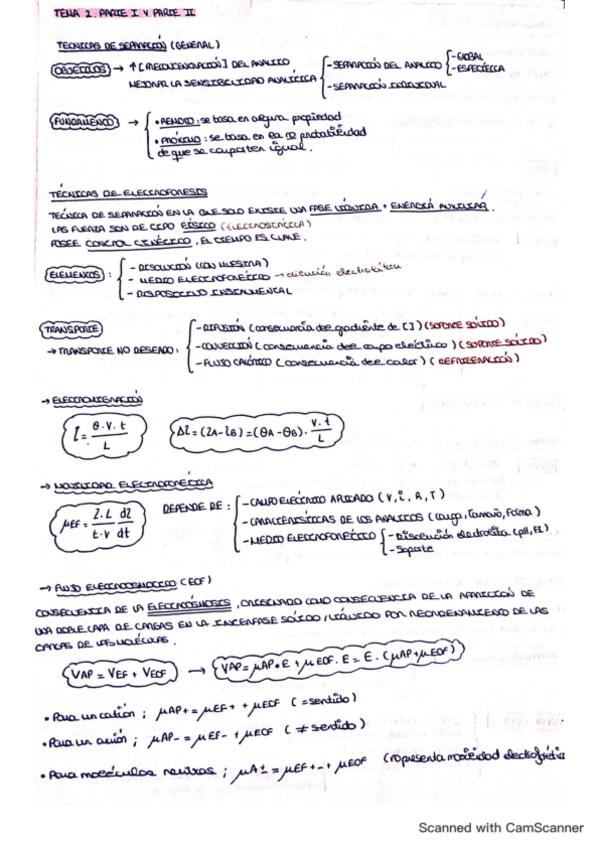 TEMA 2. PARTE I Y PARTE II
TÉCNICAS DE SEPARACIÓN (GENERAL)
OBJETIVOS → ↑ [RECONCENTRACIÓN] DEL ANALITO
MEJORAR LA SENSIBILIDAD ANALÍTICA
- SEPARACIÓN DEL ANALITO
- GLOBAL
- ESPECÍFICA
- SEPARACIÓN INDIVIDUAL
FUNDAMENTO →
• REMOTO: se basa en alguna propiedad
• PRÓXIMO: se basa en la no probabilidad
de que se comporten igual.
TÉCNICAS DE ELECTROFORESIS
TÉCNICA DE SEPARACIÓN EN LA QUE SOLO EXISTE UNA FASE LÍQUIDA + ENERGÍA AUXILIAR.
LAS FUERZA SON DE TIPO FÍSICO (ELECTROSTÁTICA)
POSEE CONTROL CINÉTICO, EL TIEMPO ES CLAVE.
ELEMENTOS:
- DISOLUCIÓN (CON MUESTRA)
- MEDIO ELECTROFORÉTICO → disolución electrolítica
- DISPOSITIVO INSTRUMENTAL
TRANSPORTE
→ TRANSPORTE NO DESEADO:
- DIFUSIÓN (consecuencia del gradiente de [ ]) (SOPORTE SÓLIDO)
- CONVECCIÓN (consecuencia del campo eléctrico) (SOPORTE SÓLIDO)
- FLUJO CALÓRICO (consecuencia del calor) (REFRIGERACIÓN)
→ ELECTROMIGRACIÓN
l = θ.V.t / L
Δl = (lA - lB) = (θA - θB) . V.t / L
→ MOVILIDAD ELECTROFORÉTICA
μEF = l.L / t.V dl / dt
DEPENDE DE:
- CAMPO ELÉCTRICO APLICADO (V, i, R, T)
- CARACTERÍSTICAS DE LOS ANALITOS (Carga, Tamaño, Forma)
- MEDIO ELECTROFORÉTICO
- Disolución electrolito (pH, FI)
- Soporte
→ FLUJO ELECTROOSMÓTICO (EOF)
CONSECUENCIA DE LA ELECTROÓSMOSIS, ORIGINADO COMO CONSECUENCIA DE LA APARICIÓN DE
UNA DOBLE CAPA DE CARGAS EN LA INTERFASE SÓLIDO / LÍQUIDO POR REORDENAMIENTO DE LAS
CARGAS DE LAS MOLÉCULAS.
VAP = VEF + VEOF → VAP = μAP . E + μEOF . E = E . (μAP + μEOF)
• Para un catión; μAP+ = μEF+ + μEOF (= sentido)
• Para un anión; μAP- = μEF- + μEOF (≠ sentido)
• Para moléculas neutras; μA± = μEF+- + μEOF (no presenta movilidad
Scanned with CamScanner